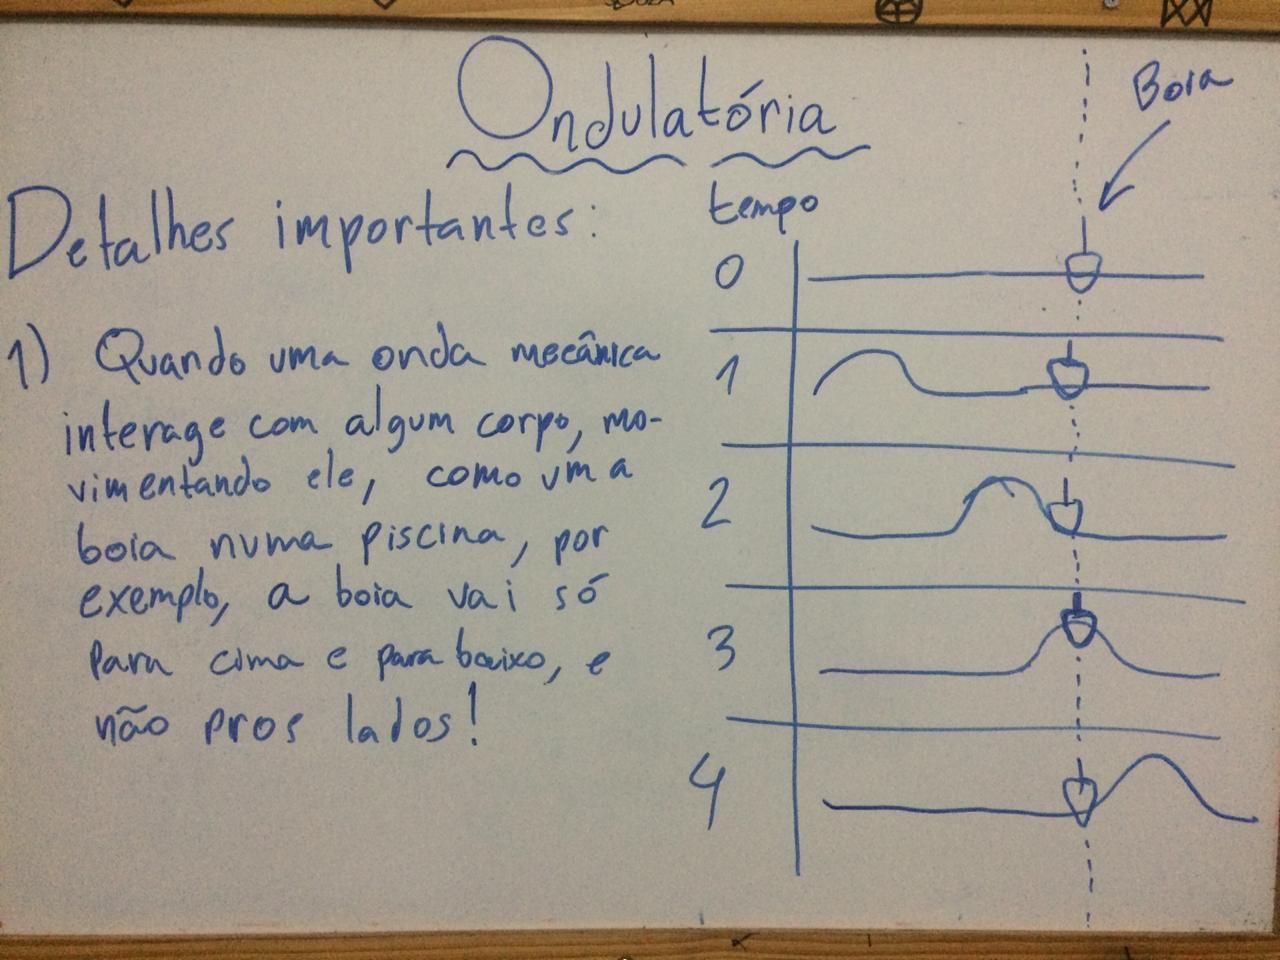 Ondulatória
Detalhes importantes:
1) Quando uma onda mecânica
interage com algum corpo, mo-
vimentando ele, como uma
boia numa piscina, por
exemplo, a boia vai só
para cima e para baixo, e
não pros lados!
Boia
tempo
0
1
2
3
4